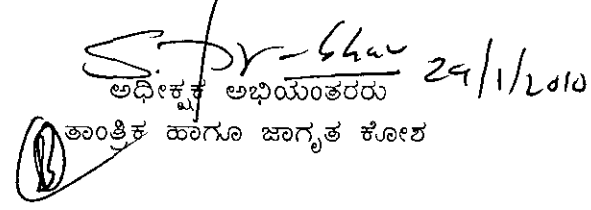 29/1/2010
ಅಧೀಕ್ಷಕ ಅಭಿಯಂತರರು
ತಾಂತ್ರಿಕ ಹಾಗೂ ಜಾಗೃತ ಕೋಶ